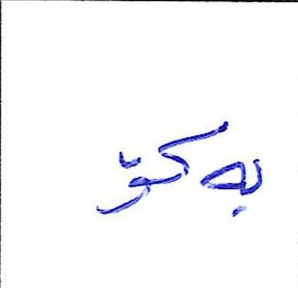 بەکۆ